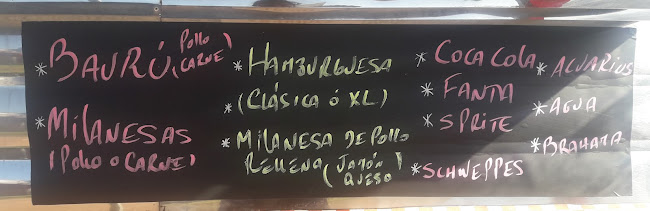 * BAURÚ (Pollo
CARNE)
* MILANESAS
(Pollo o CARNE)
* HAMBURGUESA
* (CLÁSICA ó XL)
* MILANESA DE Pollo
RELLENA (JAMÓN
QUESO)
* COCA COLA
* FANTA
* SPRITE
* SCHWEPPES
* ACUARIUS
* AGUA
* BRAHAMA